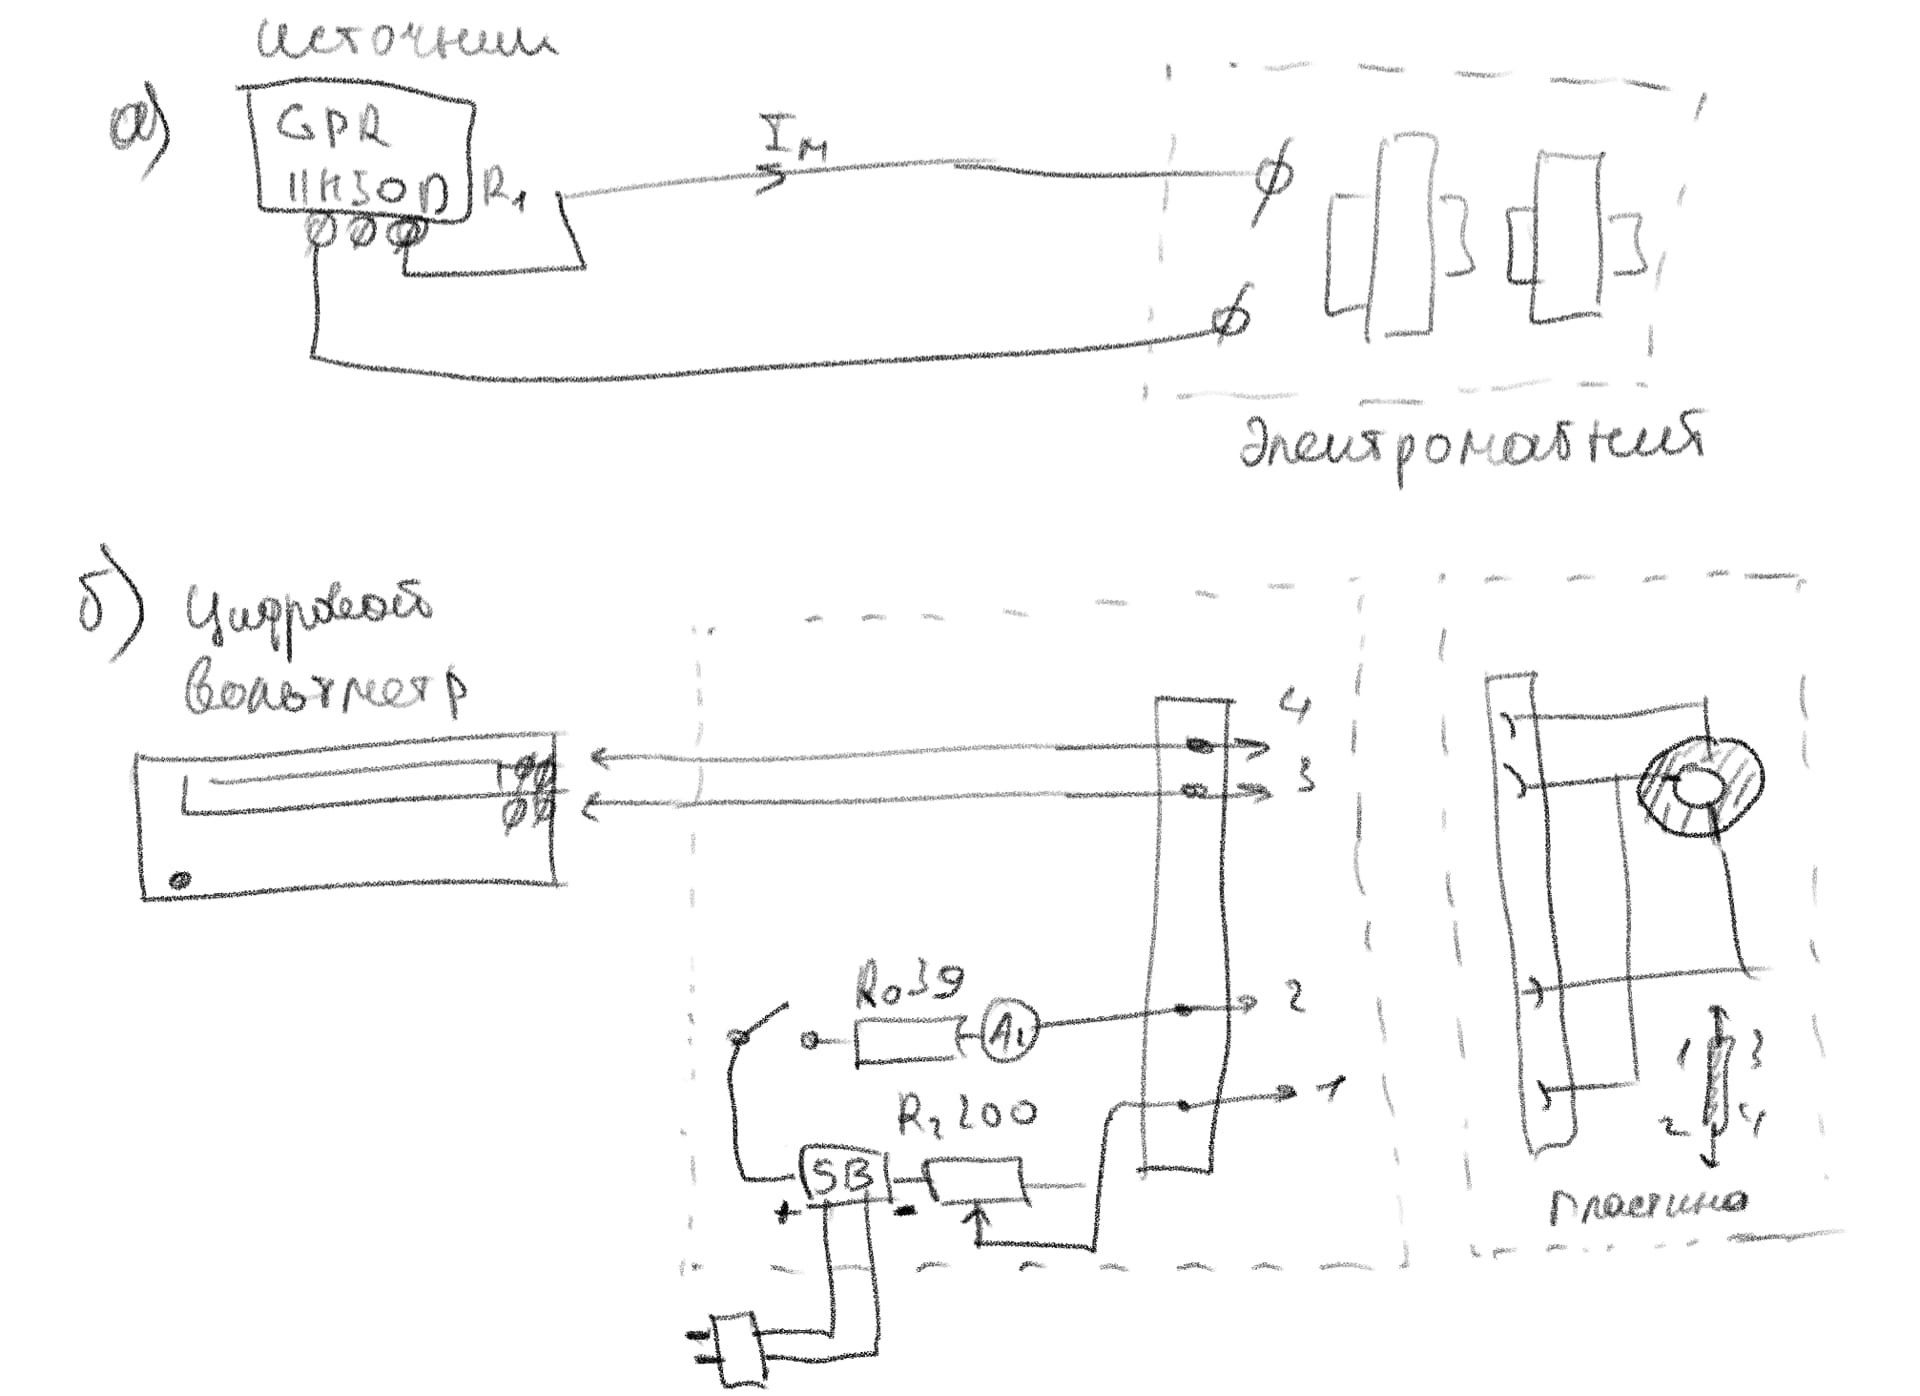 Источник
а)
GPR
11H30D
R₁
Iм
Электромагнит
б) Цифровой
вольтметр
4
3
R₀ 39
A₁
2
1
R₂ 200
SB
+ -
1 3
2 4
Пластина